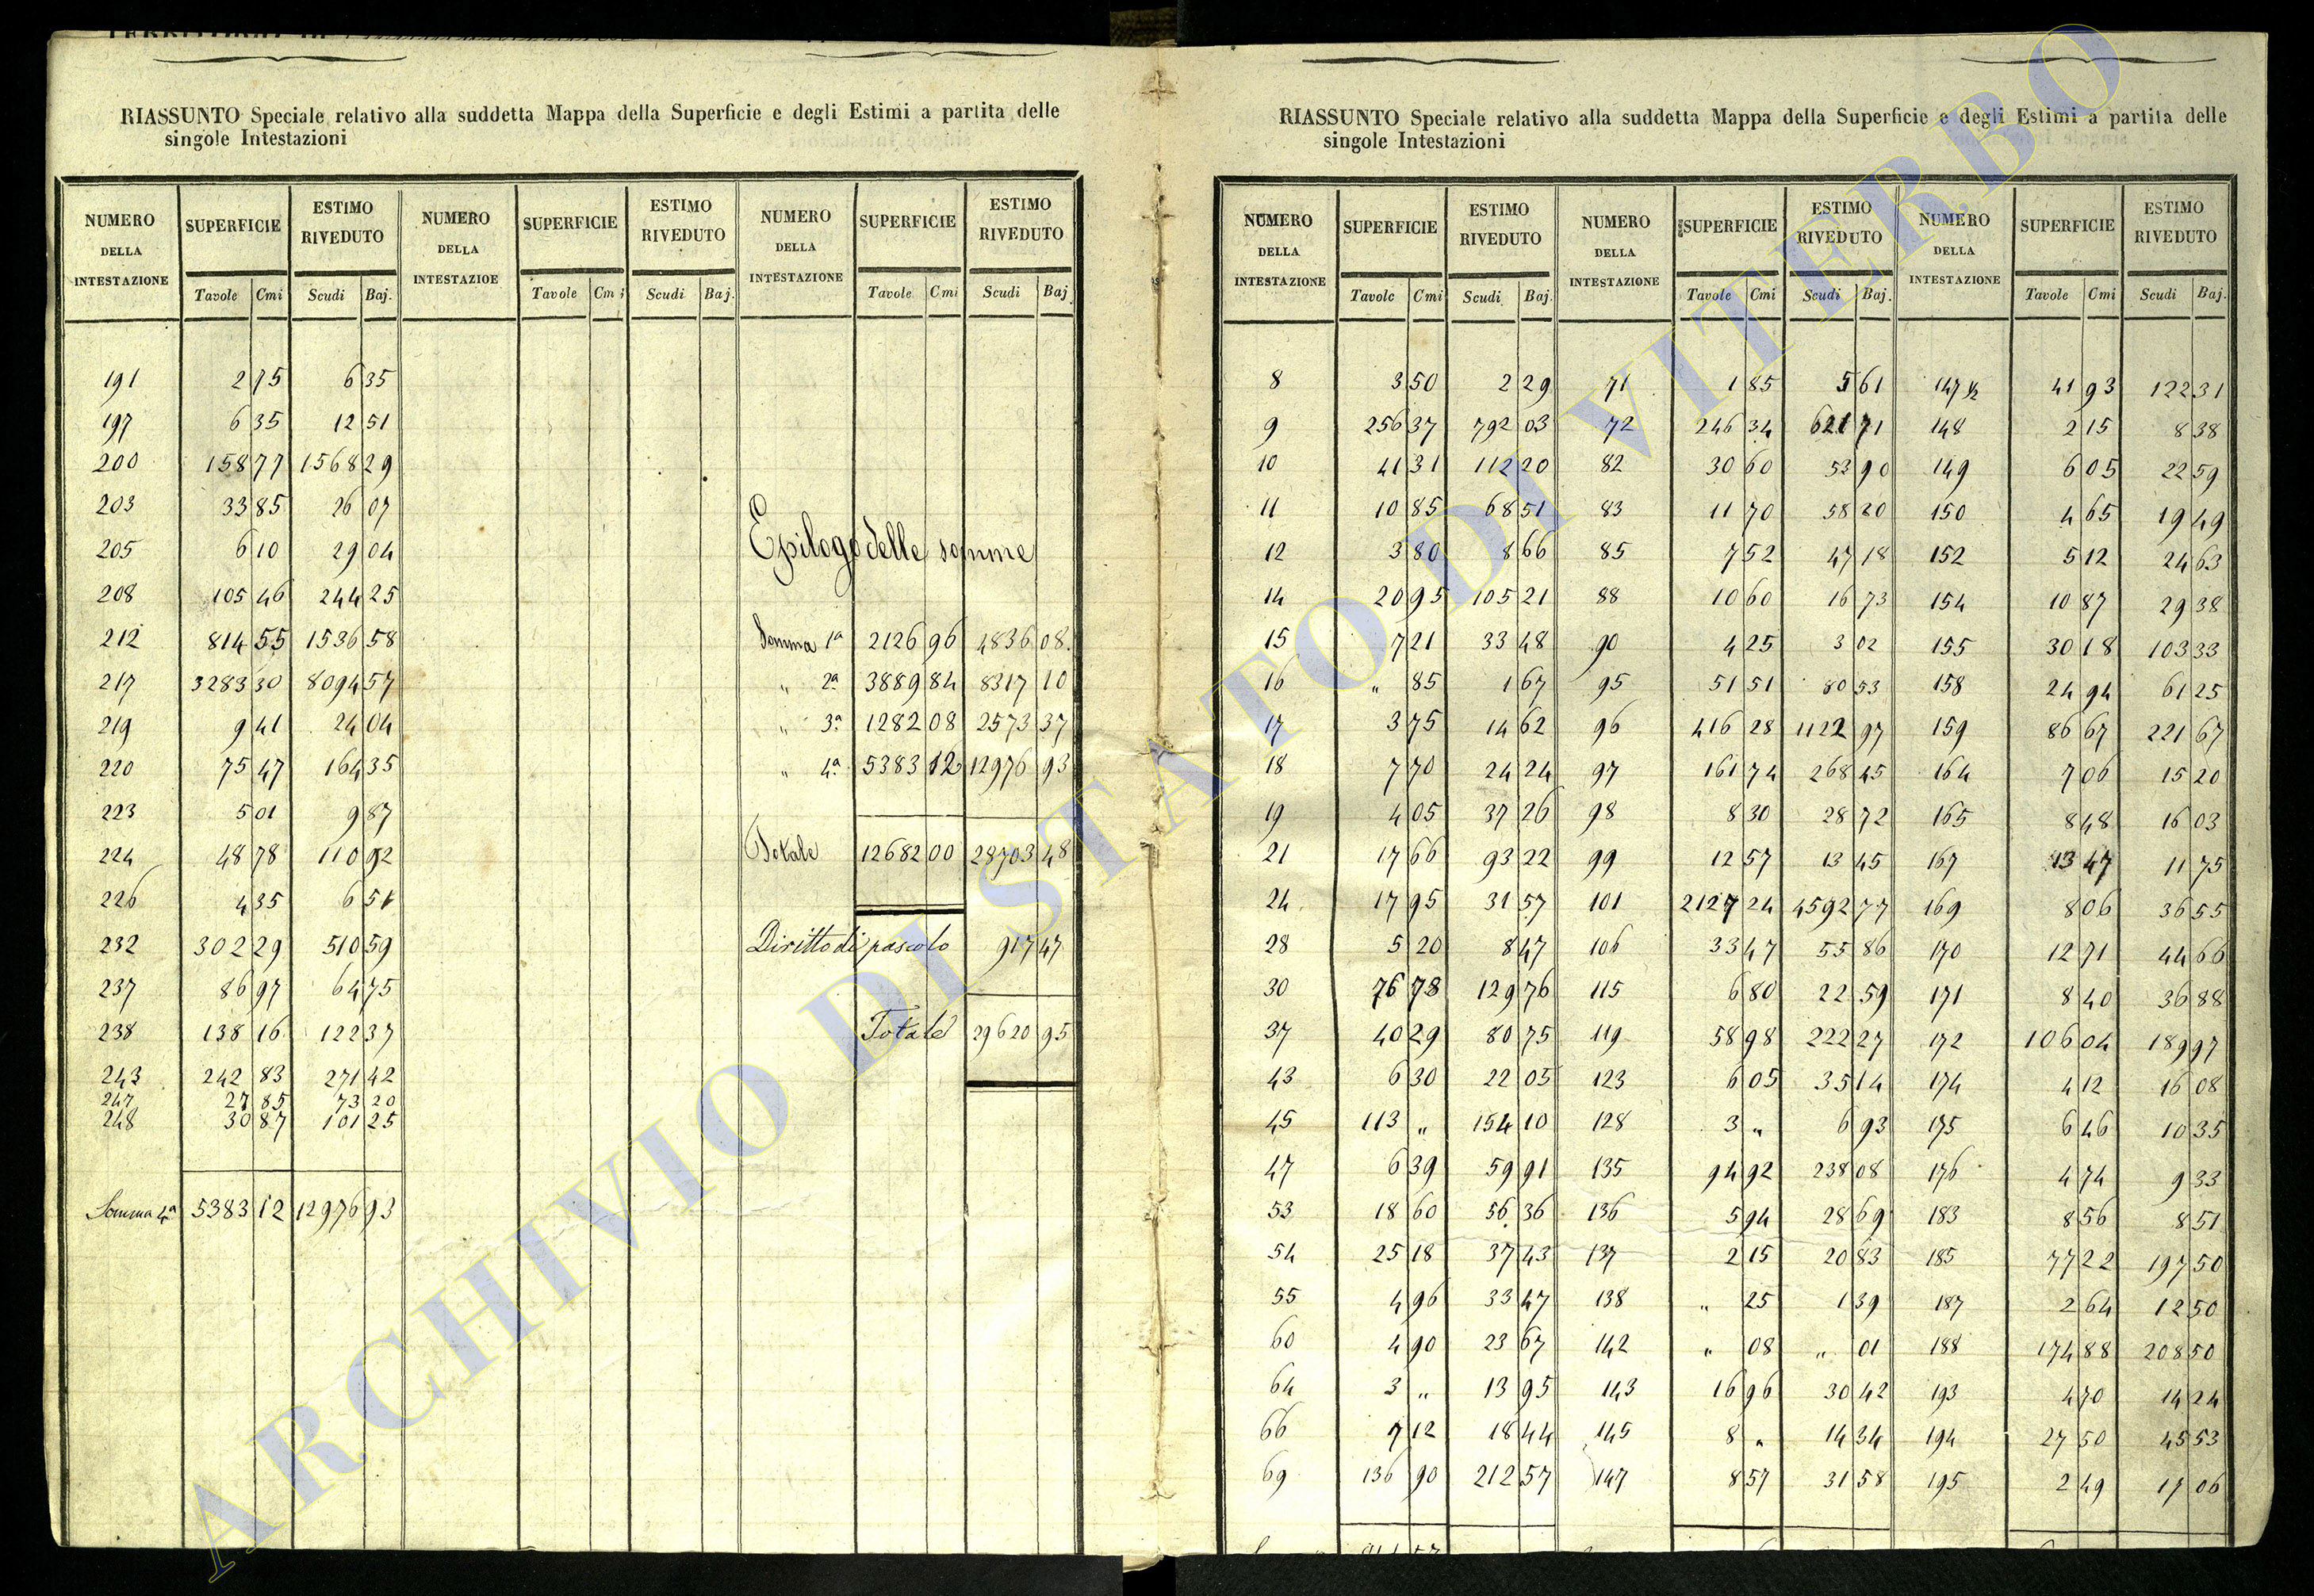 RIASSUNTO Speciale relativo alla suddetta Mappa della Superficie e degli Estimi a partita delle
singole Intestazioni
NUMERO DELLA INTESTAZIONE SUPERFICIE ESTIMO RIVEDUTO NUMERO DELLA INTESTAZIOE SUPERFICIE ESTIMO RIVEDUTO NUMERO DELLA INTESTAZIONE SUPERFICIE ESTIMO RIVEDUTO
Tavole Cmi Scudi Baj. Tavole Cmi Scudi Baj. Tavole Cmi Scudi Baj
191 2 75 6 35
197 6 35 12 51
200 158 77 1568 29
203 33 85 26 07
205 6 10 29 04 Epilogo delle somme
208 105 46 244 25
212 814 55 1536 58 Somma 1a 2126 96 4836 08.
217 3283 30 8094 57 " 2a 3889 84 8317 10
219 9 41 24 04 " 3a 1282 08 2573 37
220 75 47 164 35 " 4a 5383 12 12976 93
223 5 01 9 87
224 48 78 110 92 Totale 12682 00 28703 48
226 4 35 6 51
232 302 29 510 59 Diritto di pascolo 917 47
237 86 97 64 75
238 138 16 122 37 Totale 29620 95
243 242 83 271 42
247 27 85 73 20
248 30 87 101 25
Somma 4a 5383 12 12976 93
RIASSUNTO Speciale relativo alla suddetta Mappa della Superficie e degli Estimi a partita delle
singole Intestazioni
NUMERO DELLA INTESTAZIONE SUPERFICIE ESTIMO RIVEDUTO NUMERO DELLA INTESTAZIONE SUPERFICIE ESTIMO RIVEDUTO NUMERO DELLA INTESTAZIONE SUPERFICIE ESTIMO RIVEDUTO
Tavole Cmi Scudi Baj. Tavole Cmi Scudi Baj. Tavole Cmi Scudi Baj.
8 3 50 2 29 71 1 85 5 61 147 1/2 41 93 122 31
9 256 37 792 03 72 246 34 621 71 148 2 15 8 38
10 41 31 112 20 82 30 60 53 90 149 6 05 22 59
11 10 85 68 51 83 11 70 58 20 150 4 65 19 49
12 3 80 8 66 85 7 52 47 18 152 5 12 24 63
14 20 95 105 21 88 10 60 16 73 154 10 87 29 38
15 7 21 33 48 90 4 25 3 02 155 30 18 103 33
16 " 85 1 67 95 51 51 80 53 158 24 94 61 25
17 3 75 14 62 96 416 28 1122 97 159 86 67 221 67
18 7 70 24 24 97 161 74 268 45 164 7 06 15 20
19 4 05 37 26 98 8 30 28 72 165 8 48 16 03
21 17 66 93 22 99 12 57 13 45 167 13 47 11 75
24 17 95 31 57 101 2127 24 4592 77 169 8 06 36 55
28 5 20 8 47 106 33 47 55 86 170 12 71 44 66
30 76 78 129 76 115 6 80 22 59 171 8 40 36 88
37 40 29 80 75 119 58 98 222 27 172 106 04 189 97
43 6 30 22 05 123 6 05 35 14 174 4 12 16 08
45 113 " 154 10 128 3 " 6 93 175 6 46 10 35
47 6 39 59 91 135 94 92 238 08 176 4 74 9 33
53 18 60 56 36 136 5 94 28 69 183 8 56 8 51
54 25 18 37 43 137 2 15 20 83 185 77 22 197 50
55 4 96 33 47 138 " 25 1 39 187 2 64 12 50
60 4 90 23 67 142 " 08 " 01 188 174 88 208 50
64 3 " 13 95 143 16 96 30 42 193 4 70 14 24
66 7 12 18 44 145 8 " 14 34 194 27 50 45 53
69 136 90 212 57 147 8 57 31 58 195 2 49 17 06
ARCHIVIO DI STATO DI VITERBO